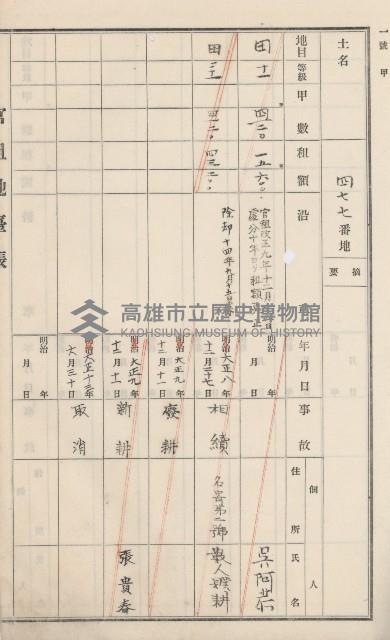 一號甲
土名
四七七番地
摘要
地目
等級
甲數
租額
沿
年月日
事故
個人
住所
氏名
田 十一 四二〇 一五六〇
官租改正九年十二月
明治 年 月 日
吳阿
田 四二〇
除却十四年九月十五
明治大正八年十二月二十七日
相續
名寄第二號
蔡人贌耕
明治大正九年十二月十一日
廢耕
明治大正九年十二月十一日
新耕
張貴春
明治大正十三年六月三十日
取消
明治 年 月 日
官租地臺帳
高雄市立歷史博物館
KAOHSIUNG MUSEUM OF HISTORY